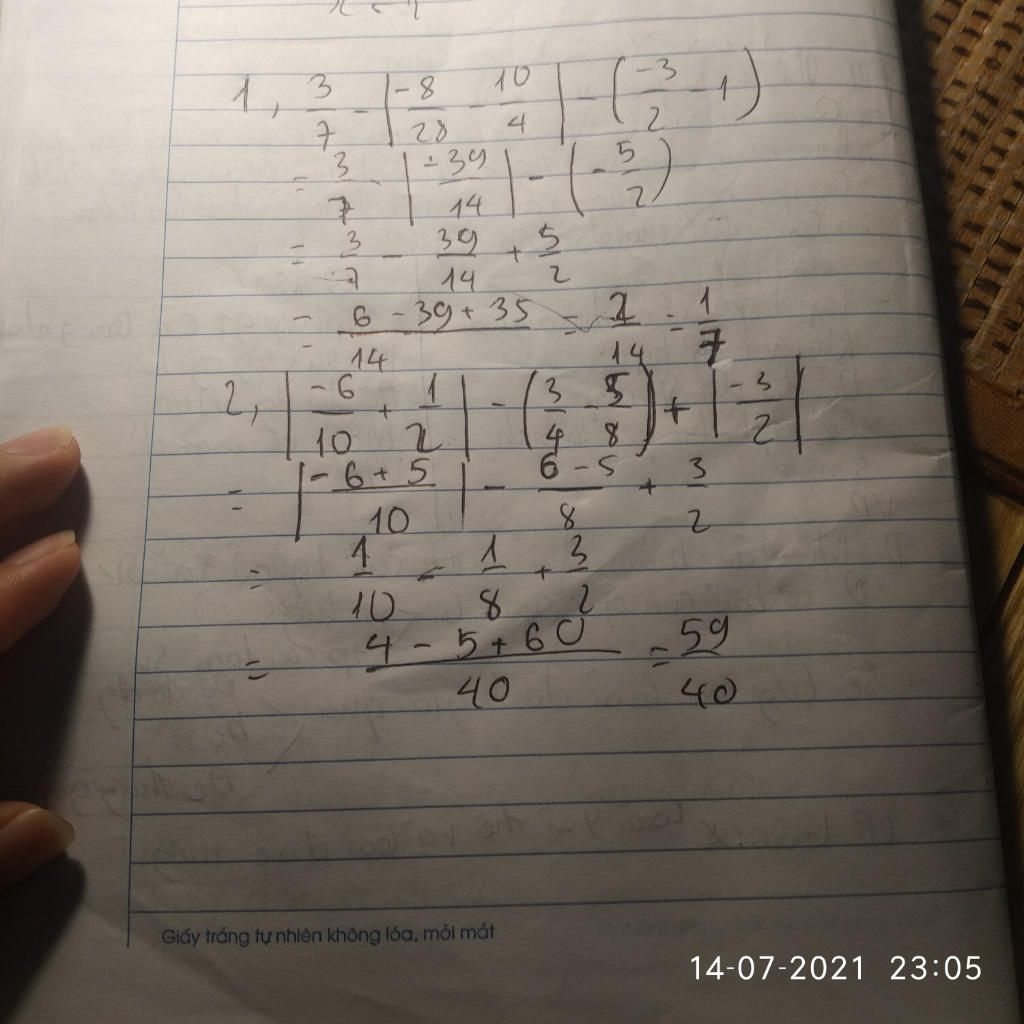 1, 3/7 - |-8/28 - 10/4| - (-3/2 - 1)
= 3/7 - |-39/14| - (-5/2)
= 3/7 - 39/14 + 5/2
= (6 - 39 + 35)/14 = 2/14 = 1/7
2, |-6/10 + 1/2| - (3/4 - 5/8) + |-3/2|
= |(-6 + 5)/10| - (6 - 5)/8 + 3/2
= 1/10 - 1/8 + 3/2
= (4 - 5 + 60)/40 = 59/40
Giấy trắng tự nhiên không lóa, mỏi mắt
14-07-2021 23:05